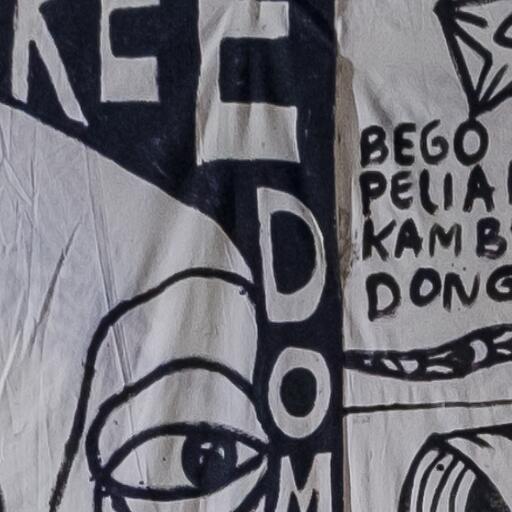 KEE
DOM
BEGO
PELIA
KAMB
DONG